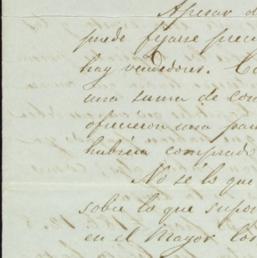 Apesar d
puede fijarse prec
hay vendedores. C
una suma de con
ofrecieron una par
hubiera comprado
No se lo que
sobre lo que supon
en el Mayor Con